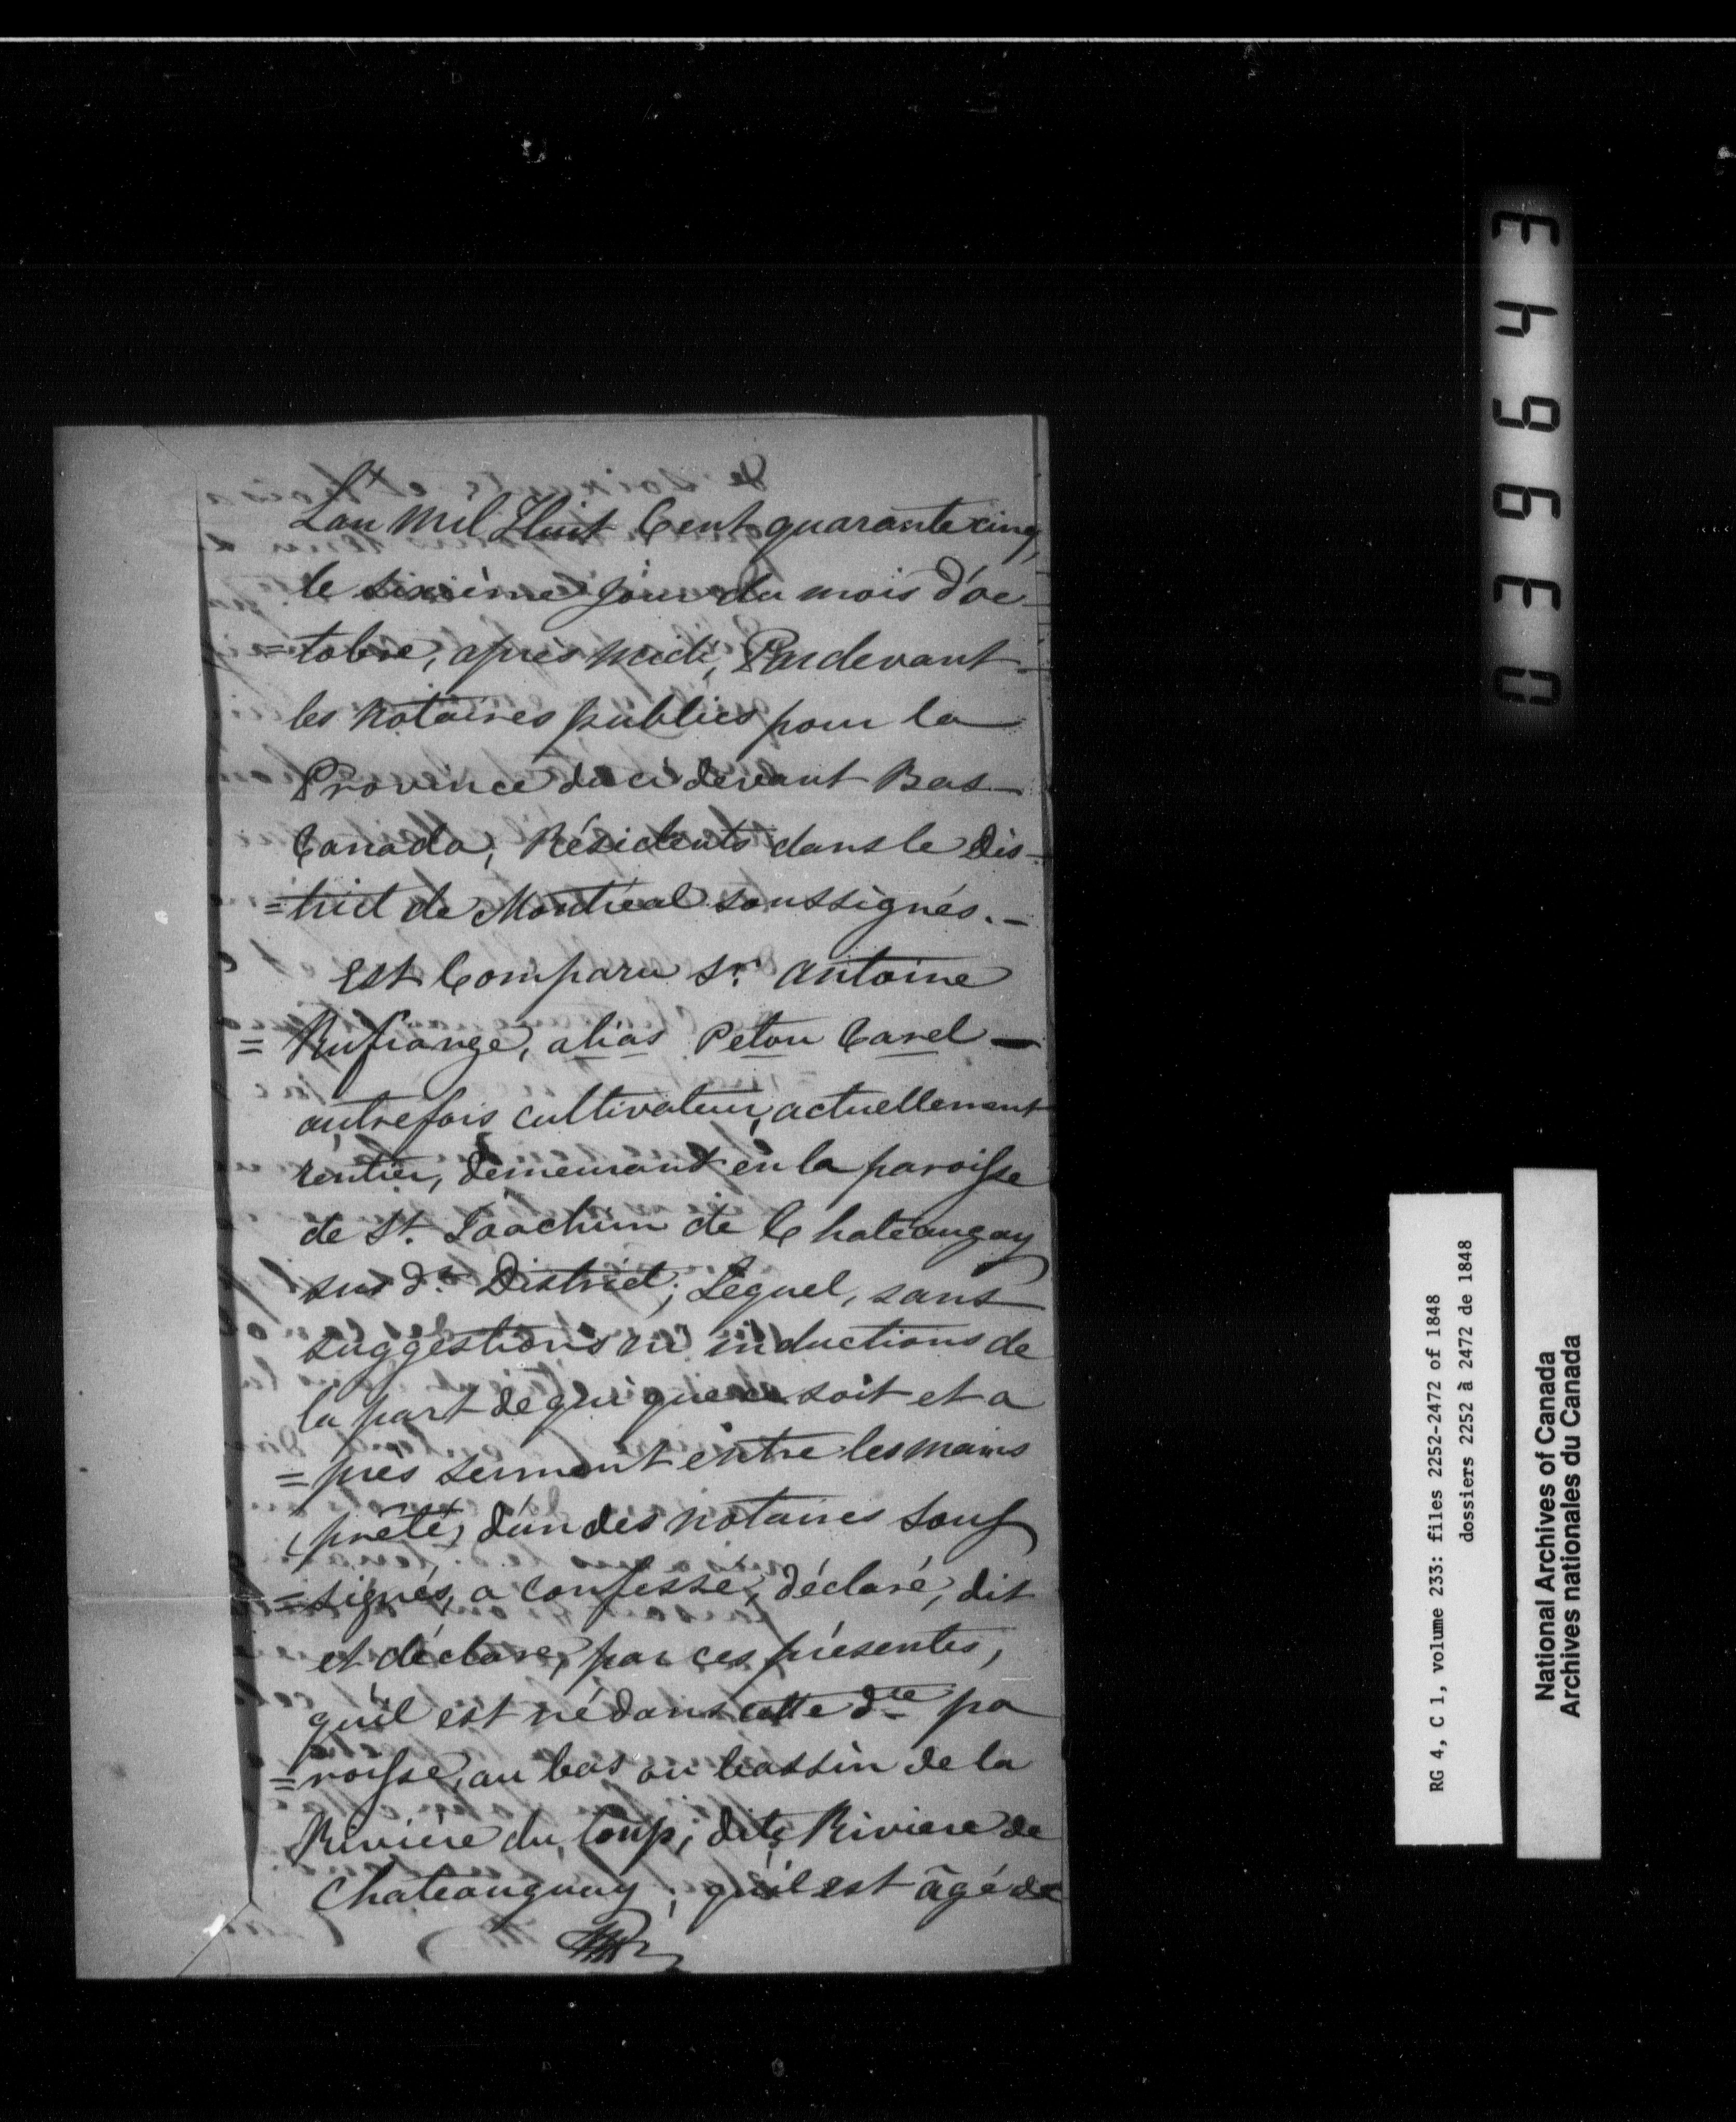 L'an mil Huit Cent quarante cinq,
le sixième jour du mois d'oc
=tobre, après midi, Pardevant
les notaires publics pour la
Province du ci devant Bas-
Canada, Résidents dans le Dis-
=trict de Montréal soussignés.-
Est Comparu Sr. Antoine
= Rufiange, alias Peton Carel —
autrefois cultivateur, actuellement
rentier, demeurant en la paroisse
de St. Joachim de Chateaugay
sus dt. District; Lequel, sans
suggestions ni inductions de
la part de qui que ce soit et a
=près serment entre les mains
(prêté) d'un des notaires sous
=signés, a confessé, déclaré, dit
et déclare, par ces présentes,
qu'il est né dans cette dte pa
=roisse, au bas ou bassin de la
Rivière du Loup, dite Riviere de
Chateauguay; qu'il est âgé de
039643
RG 4, C 1, volume 233: files 2252-2472 of 1848
dossiers 2252 à 2472 de 1848
National Archives of Canada
Archives nationales du Canada